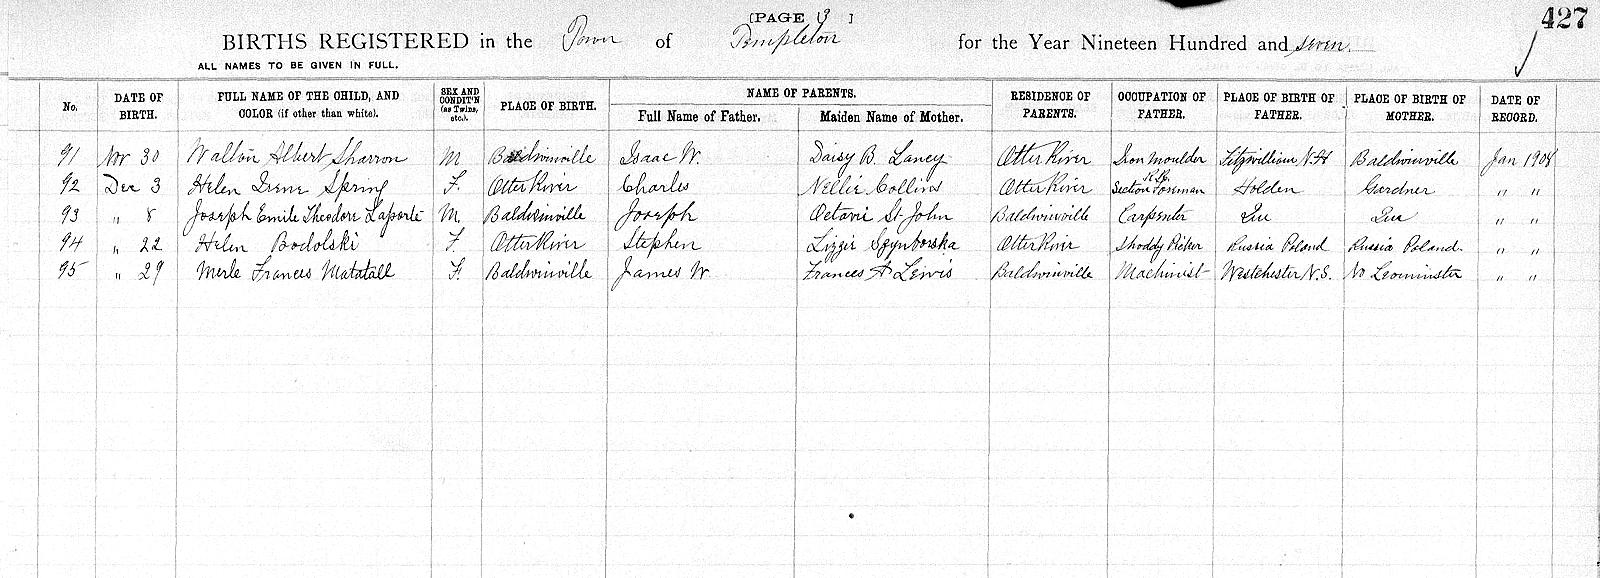 [PAGE 3 ]
427
BIRTHS REGISTERED in the Town of Templeton for the Year Nineteen Hundred and seven.
ALL NAMES TO BE GIVEN IN FULL.
No. DATE OF BIRTH. FULL NAME OF THE CHILD, AND COLOR (if other than white). SEX AND CONDIT'N (as Twins, etc.). PLACE OF BIRTH. NAME OF PARENTS. Full Name of Father. Maiden Name of Mother. RESIDENCE OF PARENTS. OCCUPATION OF FATHER. PLACE OF BIRTH OF FATHER. PLACE OF BIRTH OF MOTHER. DATE OF RECORD.
91 Nov 30 Walton Albert Sharron M. Baldwinville Isaac W. Daisy B. Lancy Otter River Iron Moulder Fitzwilliam N.H Baldwinville Jan 1908
92 Dec 3 Helen Irene Spring F. Otter River Charles Nellie Collins Otter River R.R. Section Foreman Holden Gardner " "
93 " 8 Joseph Emile Theodore Laporte M. Baldwinville Joseph Octavie St. John Baldwinville Carpenter Que Que " "
94 " 22 Helen Bodolski F. Otter River Stephen Lizzie Otter River Shoddy Picker Russia Poland Russia Poland. " "
95 " 29 Merle Frances Matatall F. Baldwinville James W. Frances A Lewis Baldwinville Machinist Westchester N.S. No Leominster " "